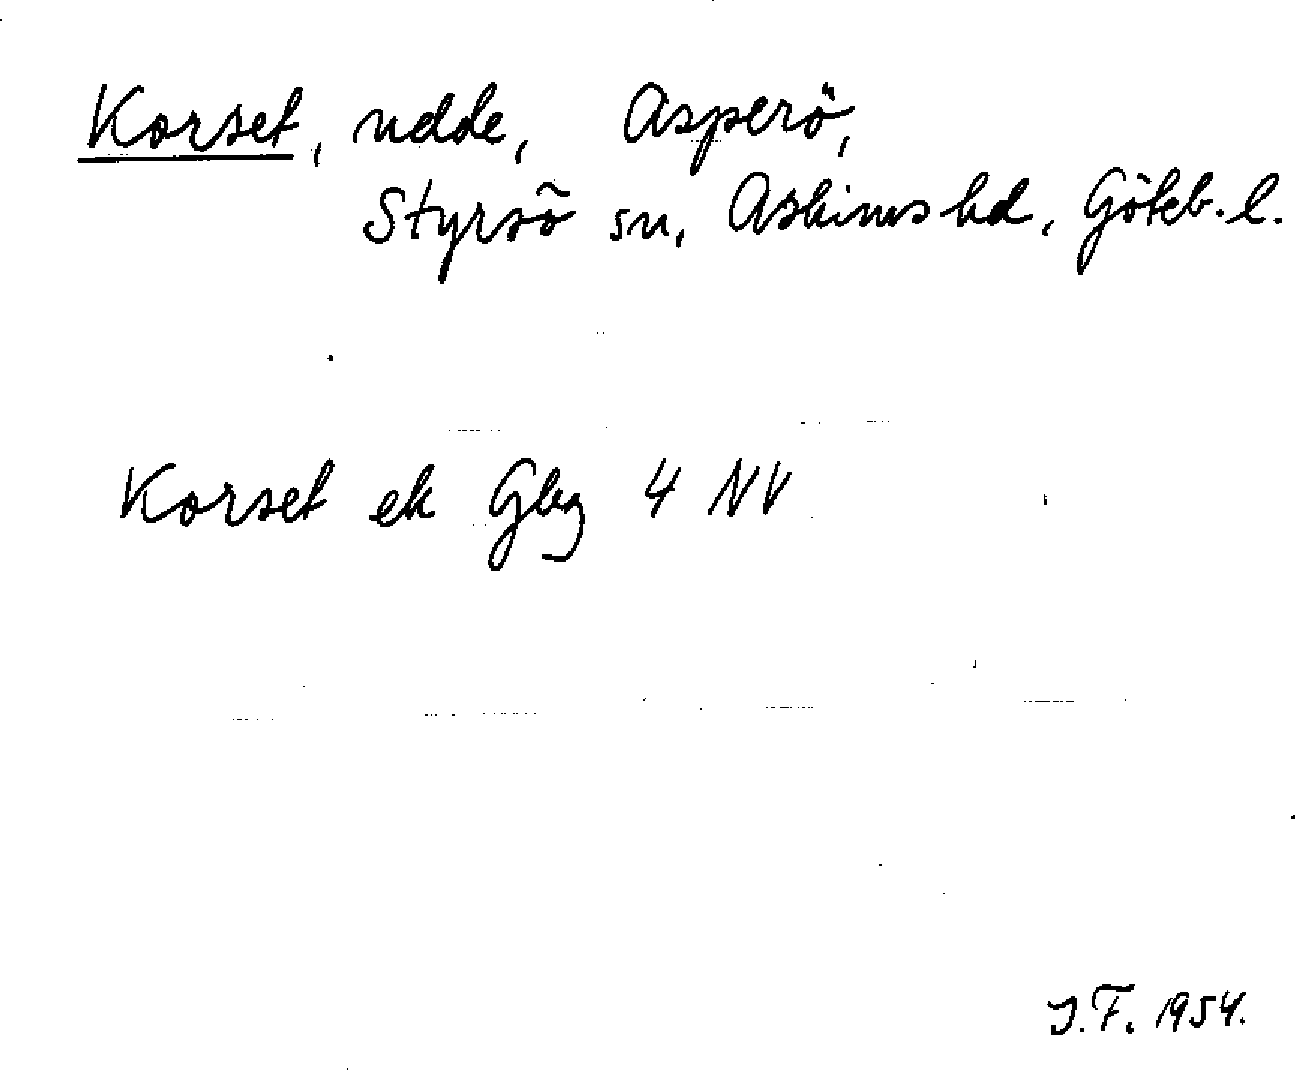 Korset, udde, Asperö,
Styrsö sn, Askims hd, Göteb. l.
Korset ek Gbg 4 NV
J.F. 1954.